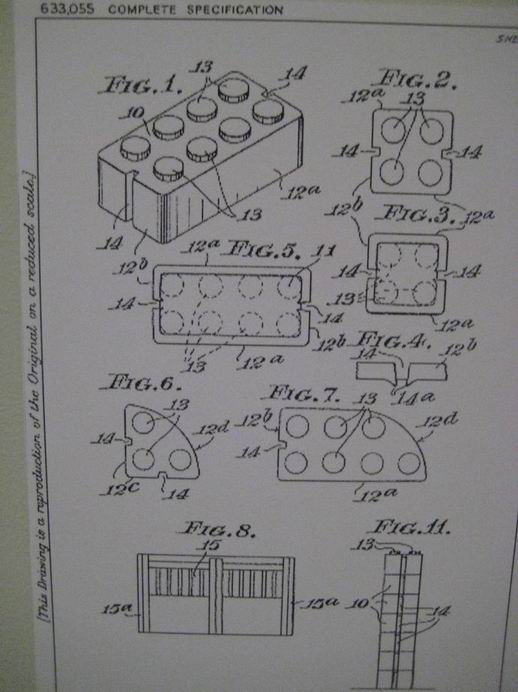 633,055 COMPLETE SPECIFICATION
[This Drawing is a reproduction of the Original on a reduced scale.]
FIG.1.
13
14
10
12a
13
14
12b
FIG.2.
12a
13
14
14
12b
12a
FIG.3.
14
14
13
12a
FIG.5.
12a
11
14
14
12b
13
12a
FIG.4.
14
12b
14a
FIG.6.
13
14
12d
12c
14
FIG.7.
12b
13
12d
14
12a
FIG.8.
15
15a
15a
FIG.11.
13
10
14